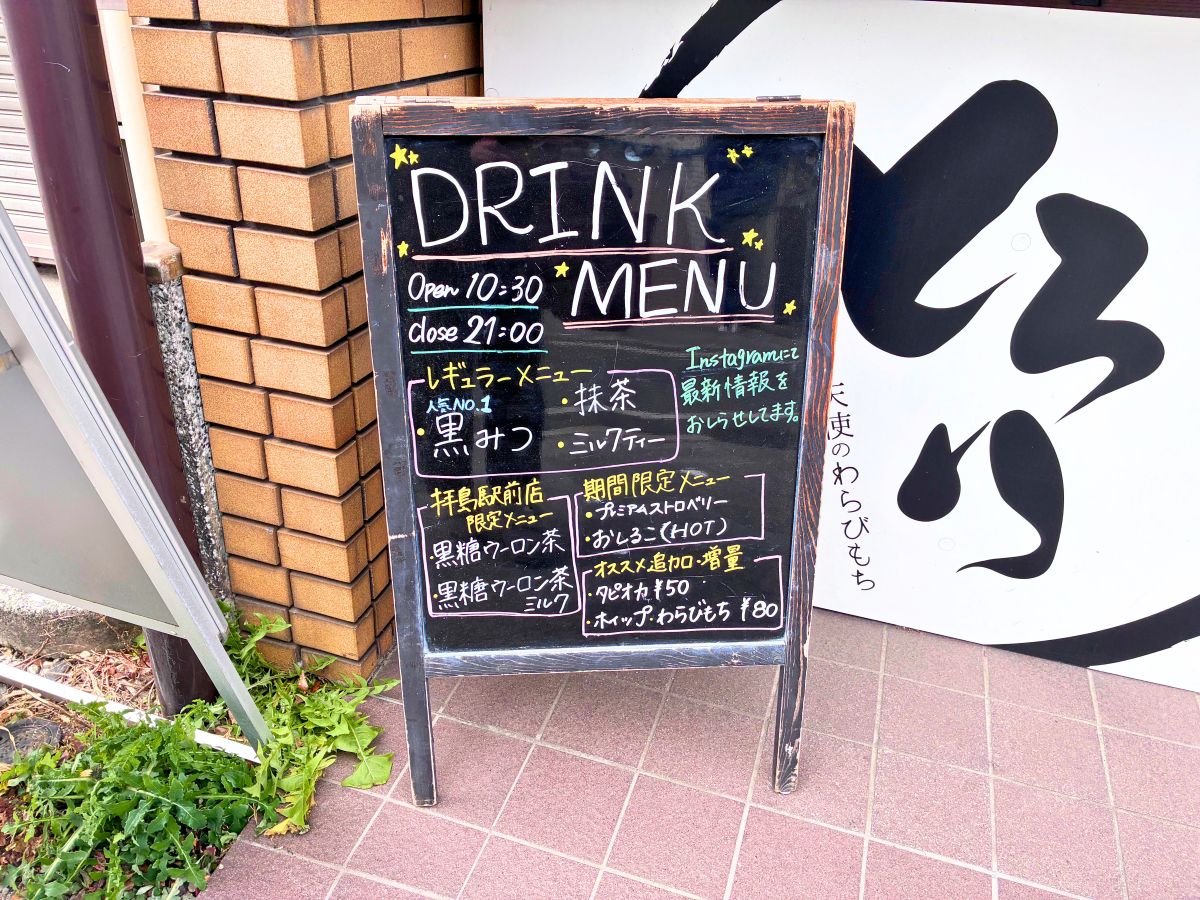 DRINK
MENU
Open 10:30
Close 21:00
レギュラーメニュー
人気NO.1
・黒みつ
・抹茶
・ミルクティー
Instagramにて
最新情報を
おしらせしてます。
拝島駅前店
限定メニュー
・黒糖ウーロン茶
・黒糖ウーロン茶
ミルク
期間限定メニュー
・プレミアムストロベリー
・おしるこ(HOT)
オススメ追加・増量
・タピオカ ¥50
・ホイップ・わらびもち ¥80
とろり
天使のわらびもち